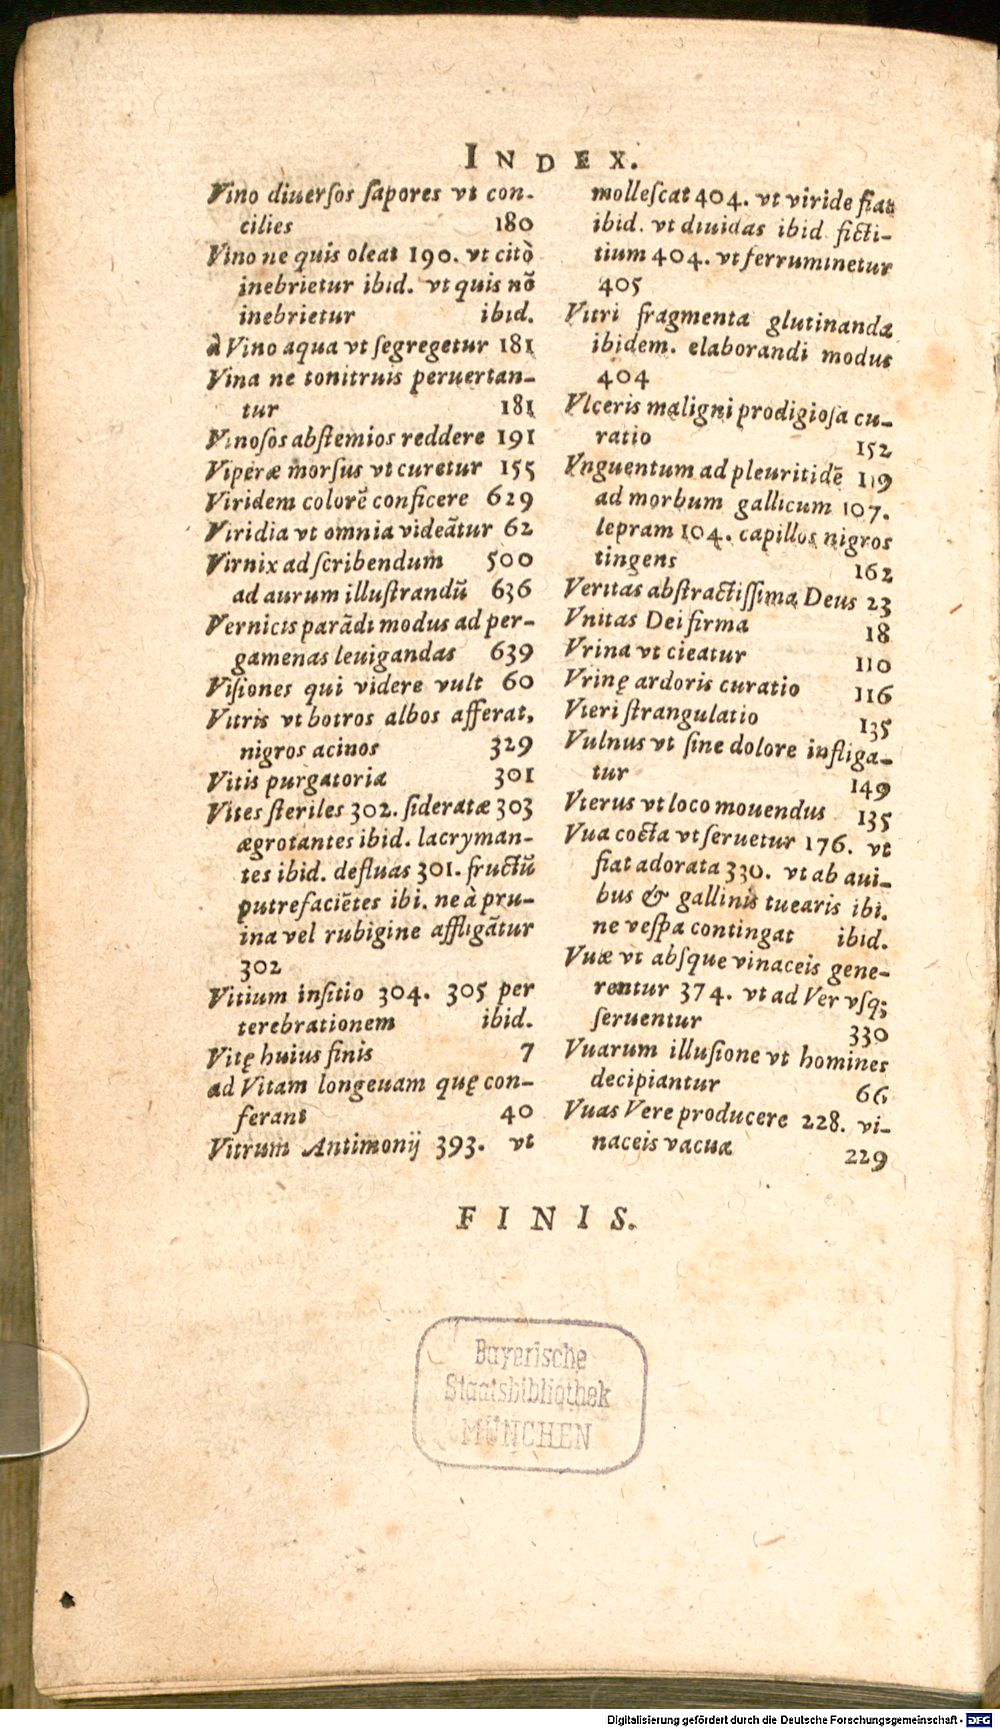 INDEX.
Vino diuerſos ſapores vt con-
cilies 180
Vino ne quis oleat 190. vt citò
inebrietur ibid. vt quis nõ
inebrietur ibid.
à Vino aqua vt ſegregetur 181
Vina ne tonitruis peruertan-
tur 181
Vinoſos abſtemios reddere 191
Viperæ morſus vt curetur 155
Viridem colorẽ conficere 629
Viridia vt omnia videãtur 62
Virnix ad ſcribendum 500
ad aurum illuſtrandũ 636
Vernicis parãdi modus ad per-
gamenas leuigandas 639
Viſiones qui videre vult 60
Vitris vt botros albos afferat,
nigros acinos 329
Vitis purgatoria 301
Vites ſteriles 302. ſideratæ 303
ægrotantes ibid. lacryman-
tes ibid. defluas 301. fructũ
putrefaciẽtes ibi. ne à pru-
ina vel rubigine affligãtur
302
Vitium inſitio 304. 305 per
terebrationem ibid.
Vitę huius finis 7
ad Vitam longeuam quę con-
ferant 40
Vitrum Antimonij 393. vt
molleſcat 404. vt viride fiat
ibid. vt diuidas ibid ficti-
tium 404. vt ferruminetur
405
Vitri fragmenta glutinanda
ibidem. elaborandi modus
404
Vlceris maligni prodigioſa cu-
ratio 152
Vnguentum ad pleuritidẽ 119
ad morbum gallicum 107.
lepram 104. capillos nigros
tingens 162
Veritas abſtractiſſima Deus 23
Vnitas Dei firma 18
Vrina vt cieatur 110
Vrinę ardoris curatio 116
Vteri ſtrangulatio 135
Vulnus vt ſine dolore infliga-
tur 149
Vterus vt loco mouendus 135
Vua cocta vt ſeruetur 176. vt
fiat adorata 330. vt ab aui-
bus & gallinis tuearis ibi.
ne veſpa contingat ibid.
Vuæ vt abſque vinaceis gene-
rentur 374. vt ad Ver vſq;
ſeruentur 330
Vuarum illuſione vt homines
decipiantur 66
Vuas Vere producere 228. vi-
naceis vacuæ 229
FINIS.
Bayerische
Staatsbibliothek
MÜNCHEN
Digitalisierung gefördert durch die Deutsche Forschungsgemeinschaft - DFG